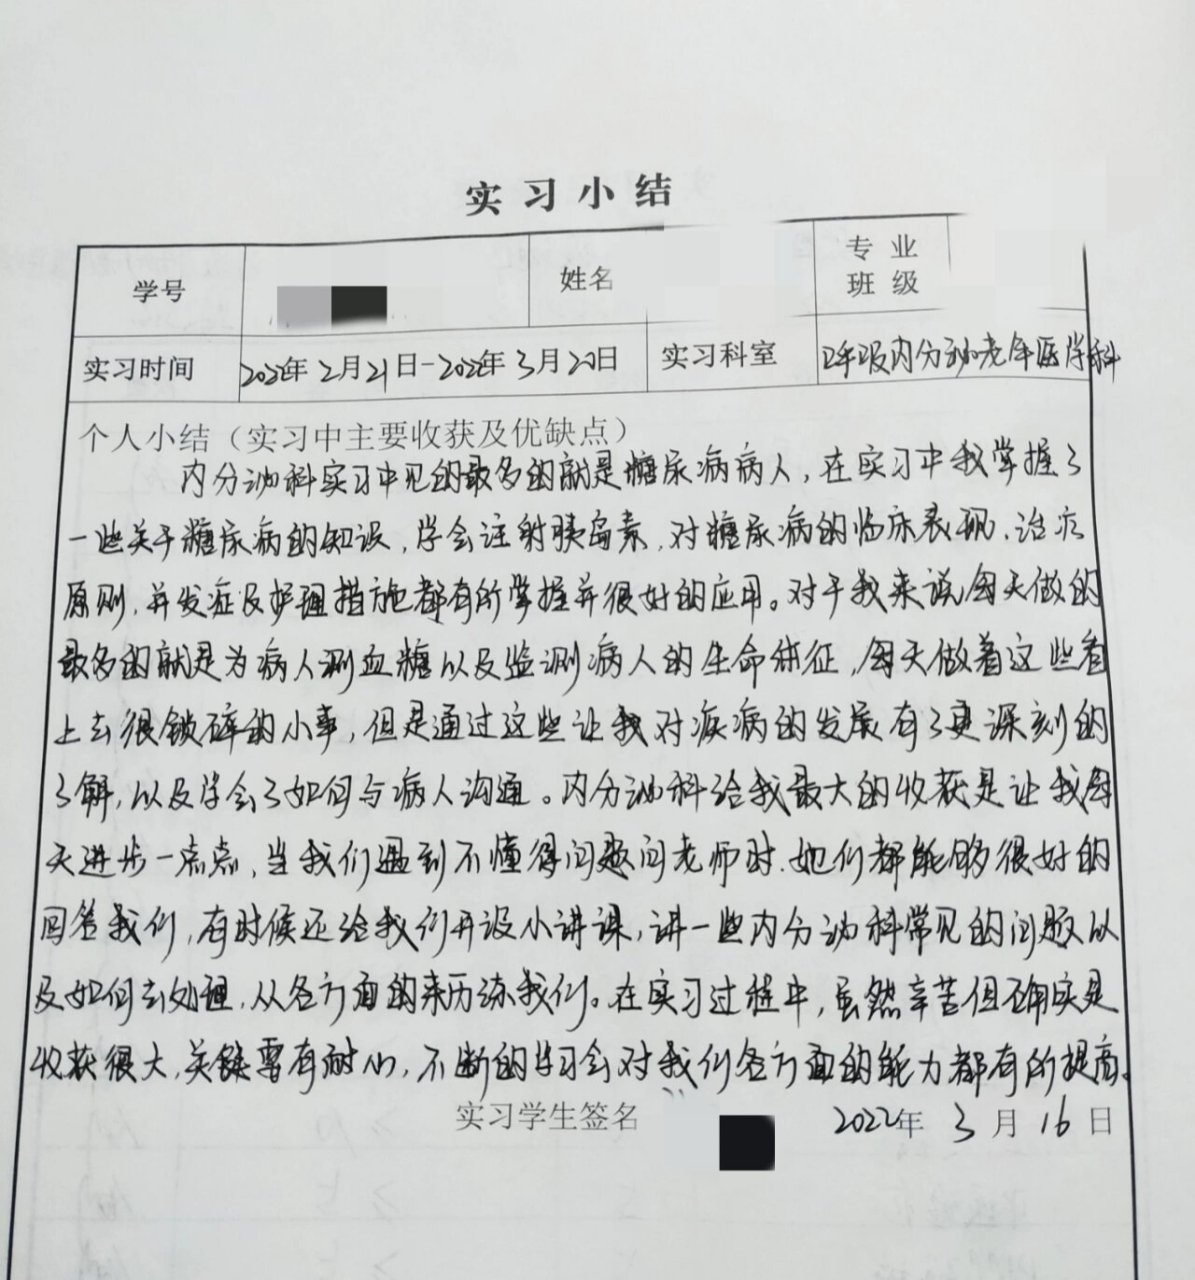 实习小结
学号 姓名 专业班级
实习时间 2022年2月21日-2022年3月20日 实习科室 内分泌老年医学科
个人小结（实习中主要收获及优缺点）
内分泌科实习中见的最多的就是糖尿病病人，在实习中我掌握了
一些关于糖尿病的知识，学会注射胰岛素，对糖尿病的临床表现、治疗
原则，并发症及护理措施都有所掌握并很好的应用。对于我来说每天做的
最多的就是为病人测血糖以及监测病人的生命体征，每天做着这些看
上去很锁碎的小事，但是通过这些让我对疾病的发展有了更深刻的
了解，以及学会了如何与病人沟通。内分泌科给我最大的收获是让我每
天进步一点点，当我们遇到不懂得问题问老师时，她们都能够很好的
回答我们，有时候还给我们开设小讲课，讲一些内分泌科常见的问题以
及如何去处理，从各方面的来历练我们。在实习过程中，虽然辛苦但确实是
收获很大，关键要有耐心，不断的学习会对我们各方面的能力都有所提高。
实习学生签名 2022年3月16日